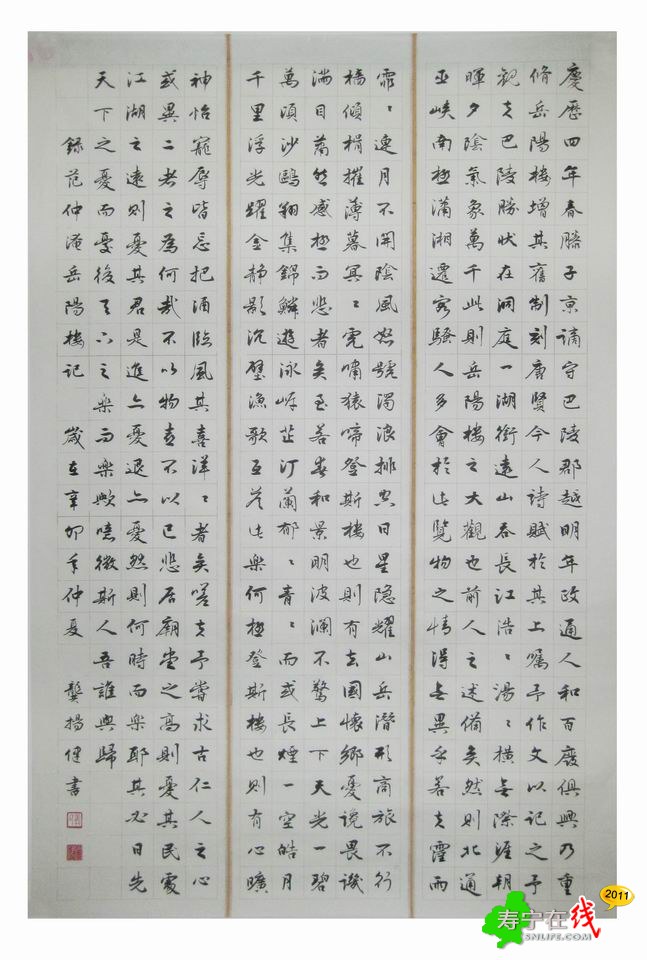 慶曆四年春滕子京謫守巴陵郡越明年政通人和百廢俱興乃重
脩岳陽樓增其舊制刻唐賢今人詩賦於其上囑予作文以記之予
觀夫巴陵勝狀在洞庭一湖銜遠山吞長江浩〻湯〻橫無際涯朝
暉夕陰氣象萬千此則岳陽樓之大觀也前人之述備矣然則北通
巫峽南極瀟湘遷客騷人多會於此覽物之情得無異乎若夫霪雨
霏〻連月不開陰風怒號濁浪排空日星隱耀山岳潛形商旅不行
檣傾楫摧薄暮冥〻虎嘯猿啼登斯樓也則有去國懷鄉憂讒畏譏
滿目蕭然感極而悲者矣至若春和景明波瀾不驚上下天光一碧
萬頃沙鷗翔集錦鱗遊泳岸芷汀蘭郁〻青〻而或長煙一空皓月
千里浮光躍金靜影沉璧漁歌互答此樂何極登斯樓也則有心曠
神怡寵辱皆忘把酒臨風其喜洋〻者矣嗟夫予嘗求古仁人之心
或異二者之為何哉不以物喜不以己悲居廟堂之高則憂其民處
江湖之遠則憂其君是進亦憂退亦憂然則何時而樂耶其必曰先
天下之憂而憂後天下之樂而樂歟噫微斯人吾誰與歸
錄范仲淹岳陽樓記 歲在辛卯年仲夏 龔揚健書
2011
寿宁在线
SNLIFE.COM